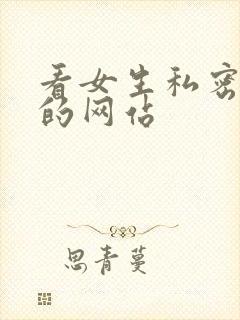 看女生私密
的网站
思青蔓